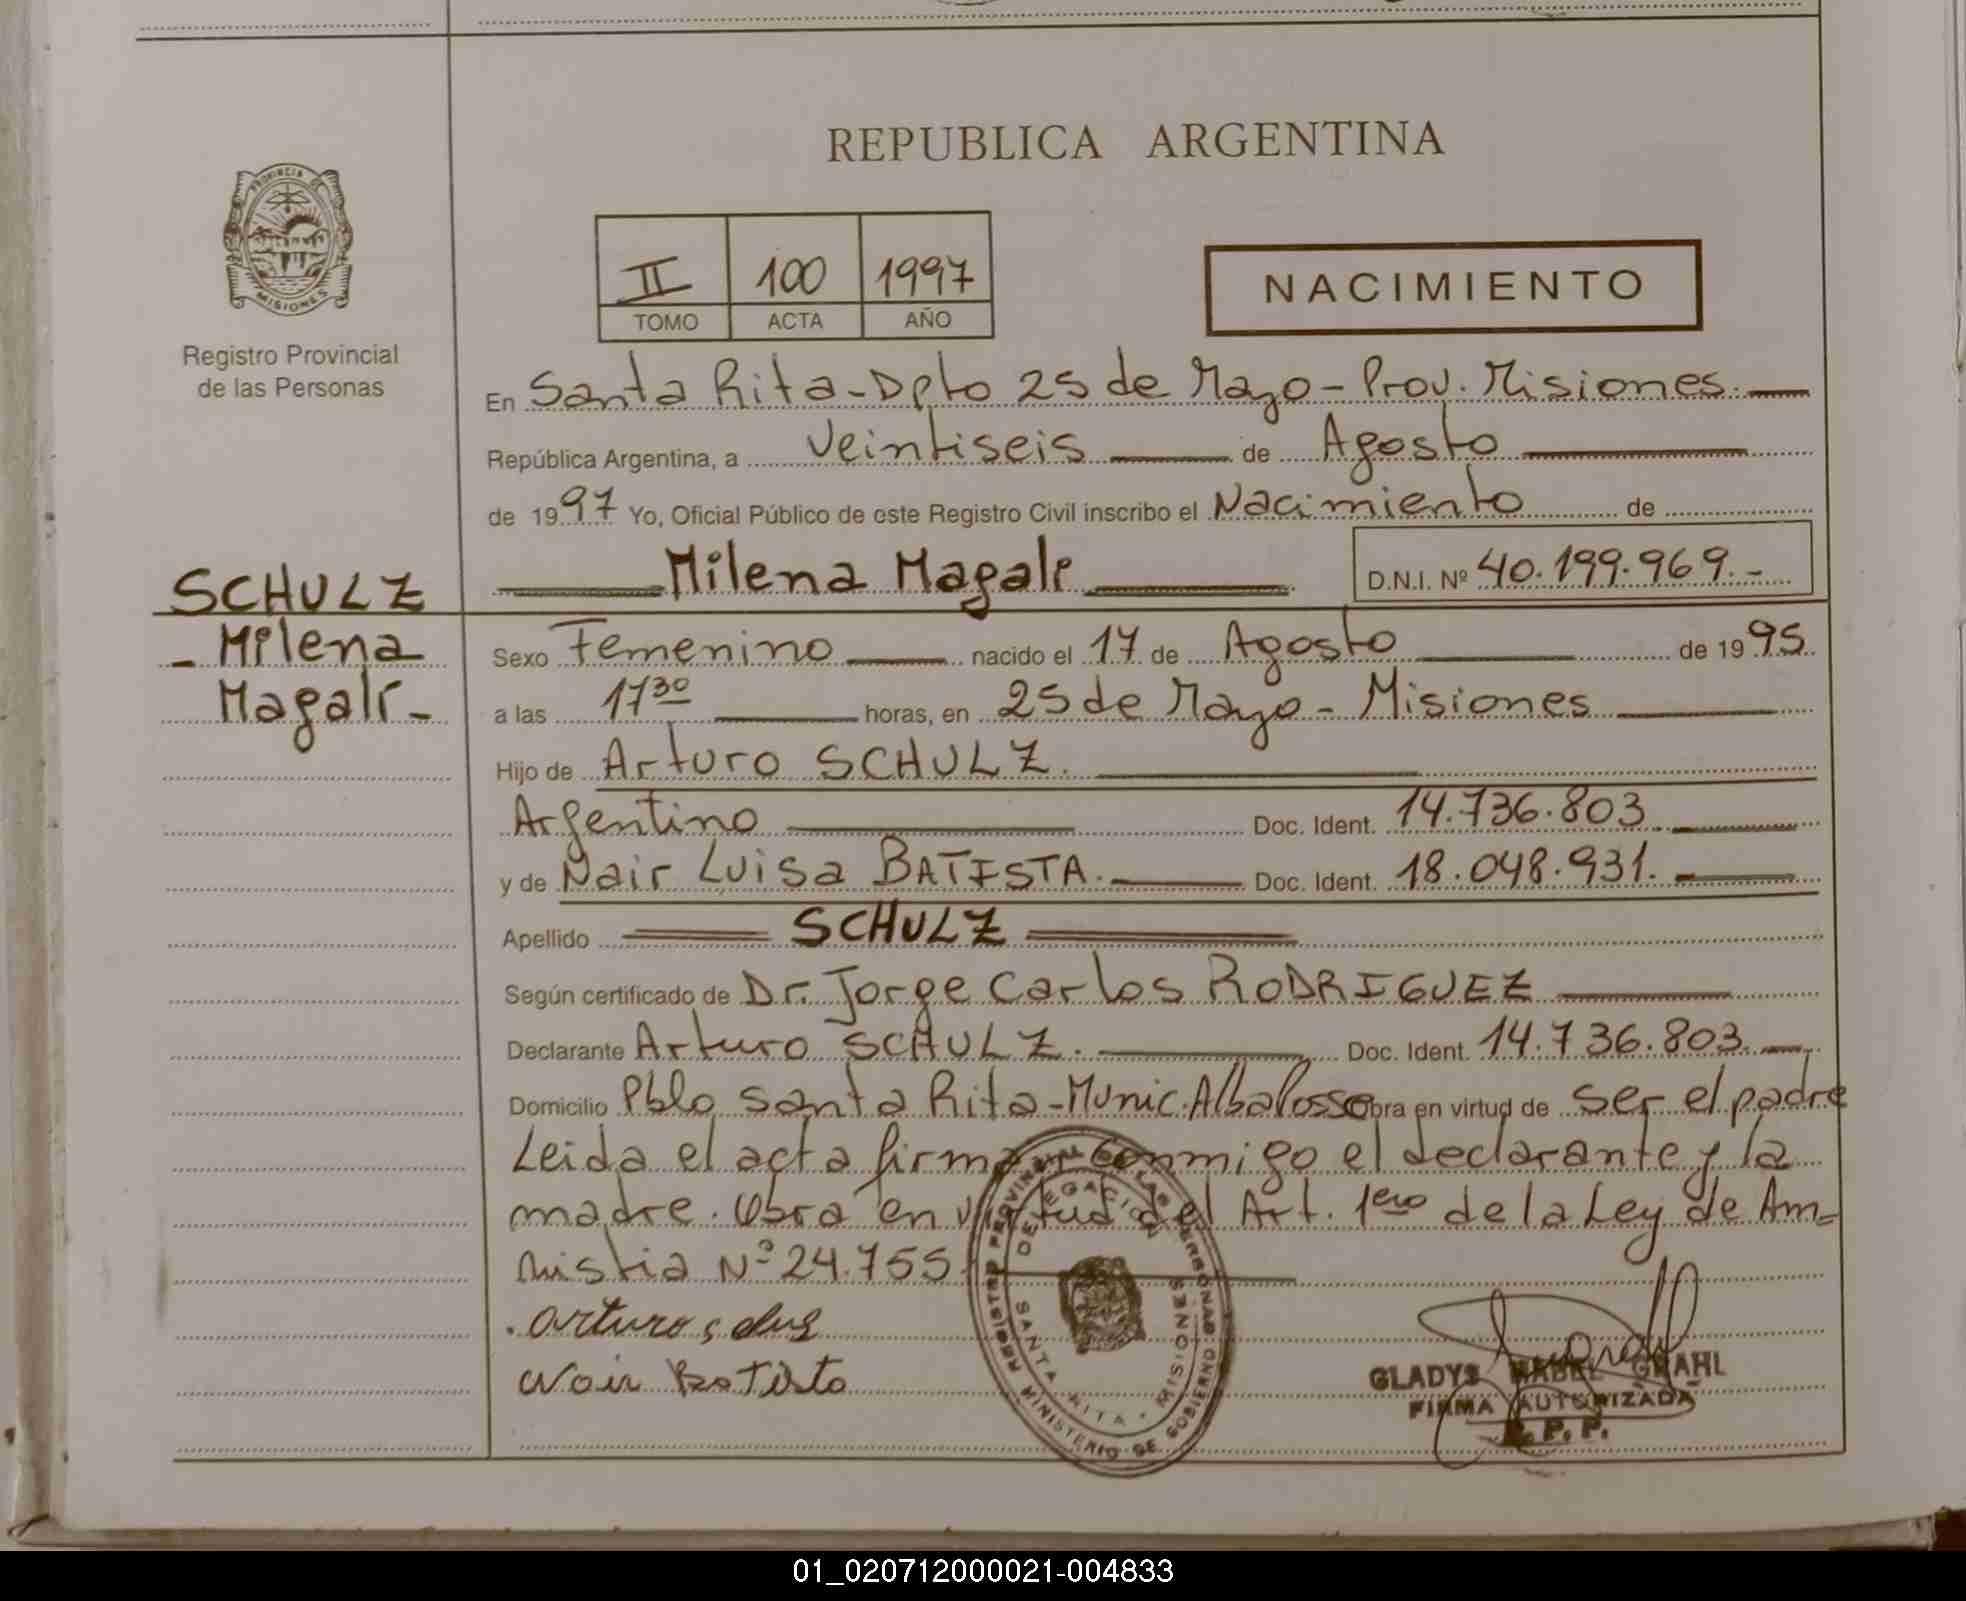 REPUBLICA ARGENTINA
PROVINCIA DE
MISIONES
Registro Provincial
de las Personas
II 100 1997
TOMO ACTA AÑO
NACIMIENTO
En Santa Rita-Dpto 25 de Mayo-Prov. Misiones.
República Argentina, a veintiseis de Agosto
de 1997 Yo, Oficial Público de este Registro Civil inscribo el Nacimiento de
Milena Magalí D.N.I. Nº 40.199.969.-
SCHULZ
- Milena
Magalí-
Sexo Femenino nacido el 17 de Agosto de 1995
a las 17³⁰ horas, en 25 de Mayo - Misiones
Hijo de Arturo SCHULZ.
Argentino Doc. Ident. 14.736.803
y de Nair Luisa BATISTA. Doc. Ident. 18.048.931.
Apellido SCHULZ
Según certificado de Dr. Jorge Carlos RODRIGUEZ
Declarante Arturo SCHULZ. Doc. Ident. 14.736.803.
Domicilio Pblo Santa Rita-Munic. Alba Posse obra en virtud de ser el padre
Leida el acta firma conmigo el declarante y la
madre. Obra en virtud del Art. 1ero de la Ley de Am=
nistia Nº 24.755
Arturo
Nair Batista
REGISTRO PROVINCIAL DE LAS PERSONAS
MINISTERIO DE GOBIERNO
DELEGACION
SANTA RITA - MISIONES
GLADYS MABEL GRAHL
FIRMA AUTORIZADA
R. P. P.
01_020712000021-004833